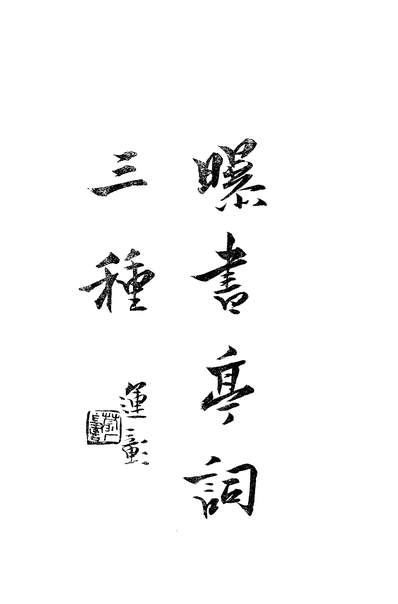 曝書亭詞
三種
運彰